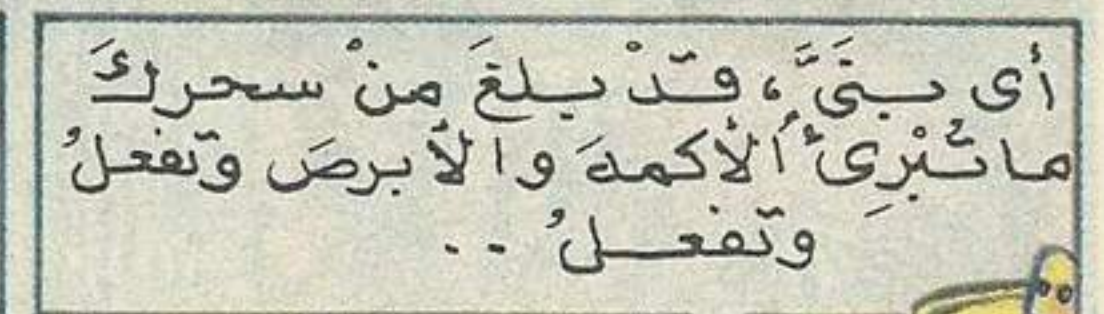 أى بنَىَّ، قَدْ بلغَ منْ سحركَ
ما تُبْرِئُ الأكمهَ والأبرصَ وتفعلُ
وتفعلُ ..